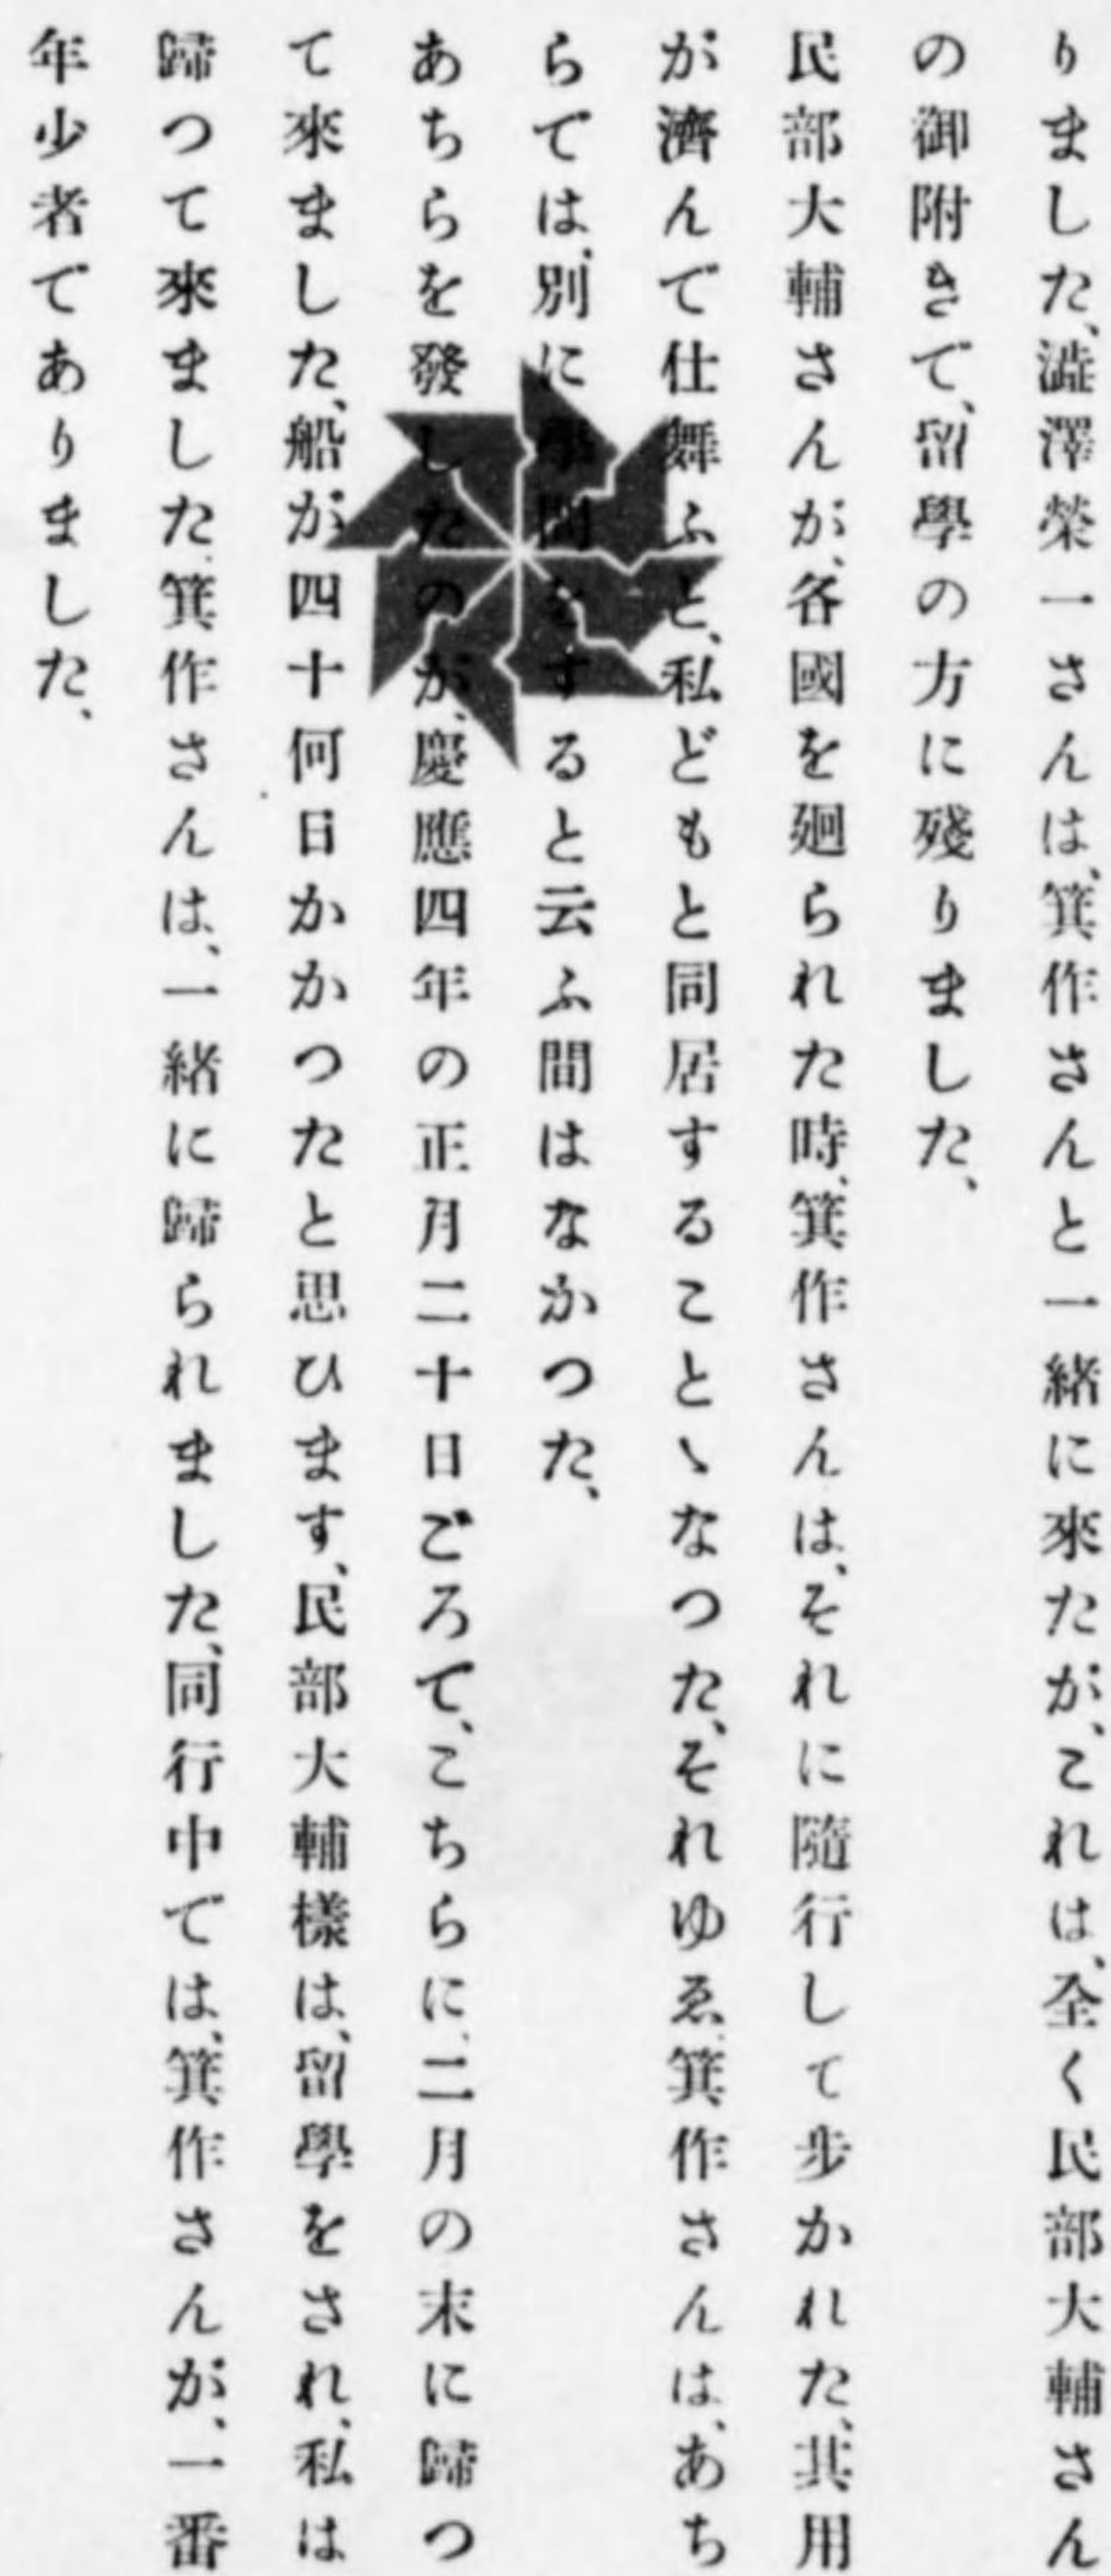 りました、澁澤榮一さんは、箕作さんと一緒に來たが、これは、全く民部大輔さん
の御附きで、留學の方に殘りました、
民部大輔さんが、各國を廻られた時、箕作さんは、それに隨行して歩かれた、其用
が濟んで仕舞ふと、私どもと同居することゝなつた、それゆゑ、箕作さんは、あち
らでは、別に學問をすると云ふ間はなかつた、
あちらを發したのが、慶應四年の正月二十日ごろて、こちらに、二月の末に歸つ
て來ました、船が四十何日かかつたと思ひます、民部大輔樣は、留學をされ、私は
歸つて來ました、箕作さんは、一緒に歸られました、同行中では、箕作さんが、一番
年少者でありました、